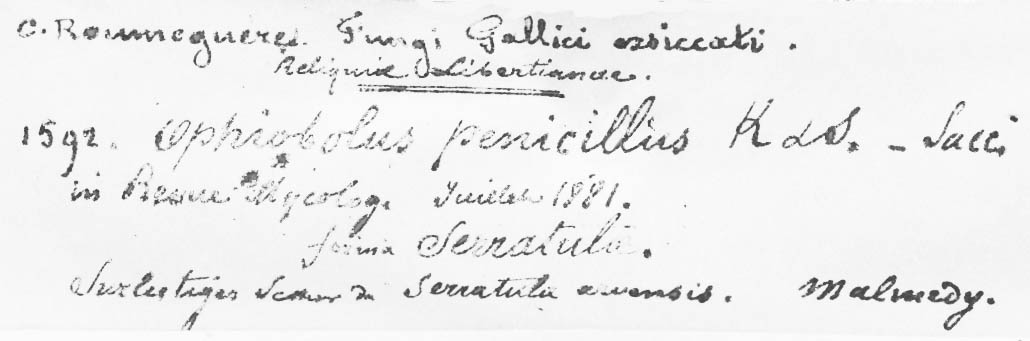 C. Roumegueres. Fungi Gallici exsiccati.
Reliquiæ Libertianae.
1592. Ophiobolus penicillius K & S. - Sacc.
in Revue Mycolog. Juillet 1881.
forma Serratulæ.
Sur les tiges de Serratula arvensis. Malmedy.